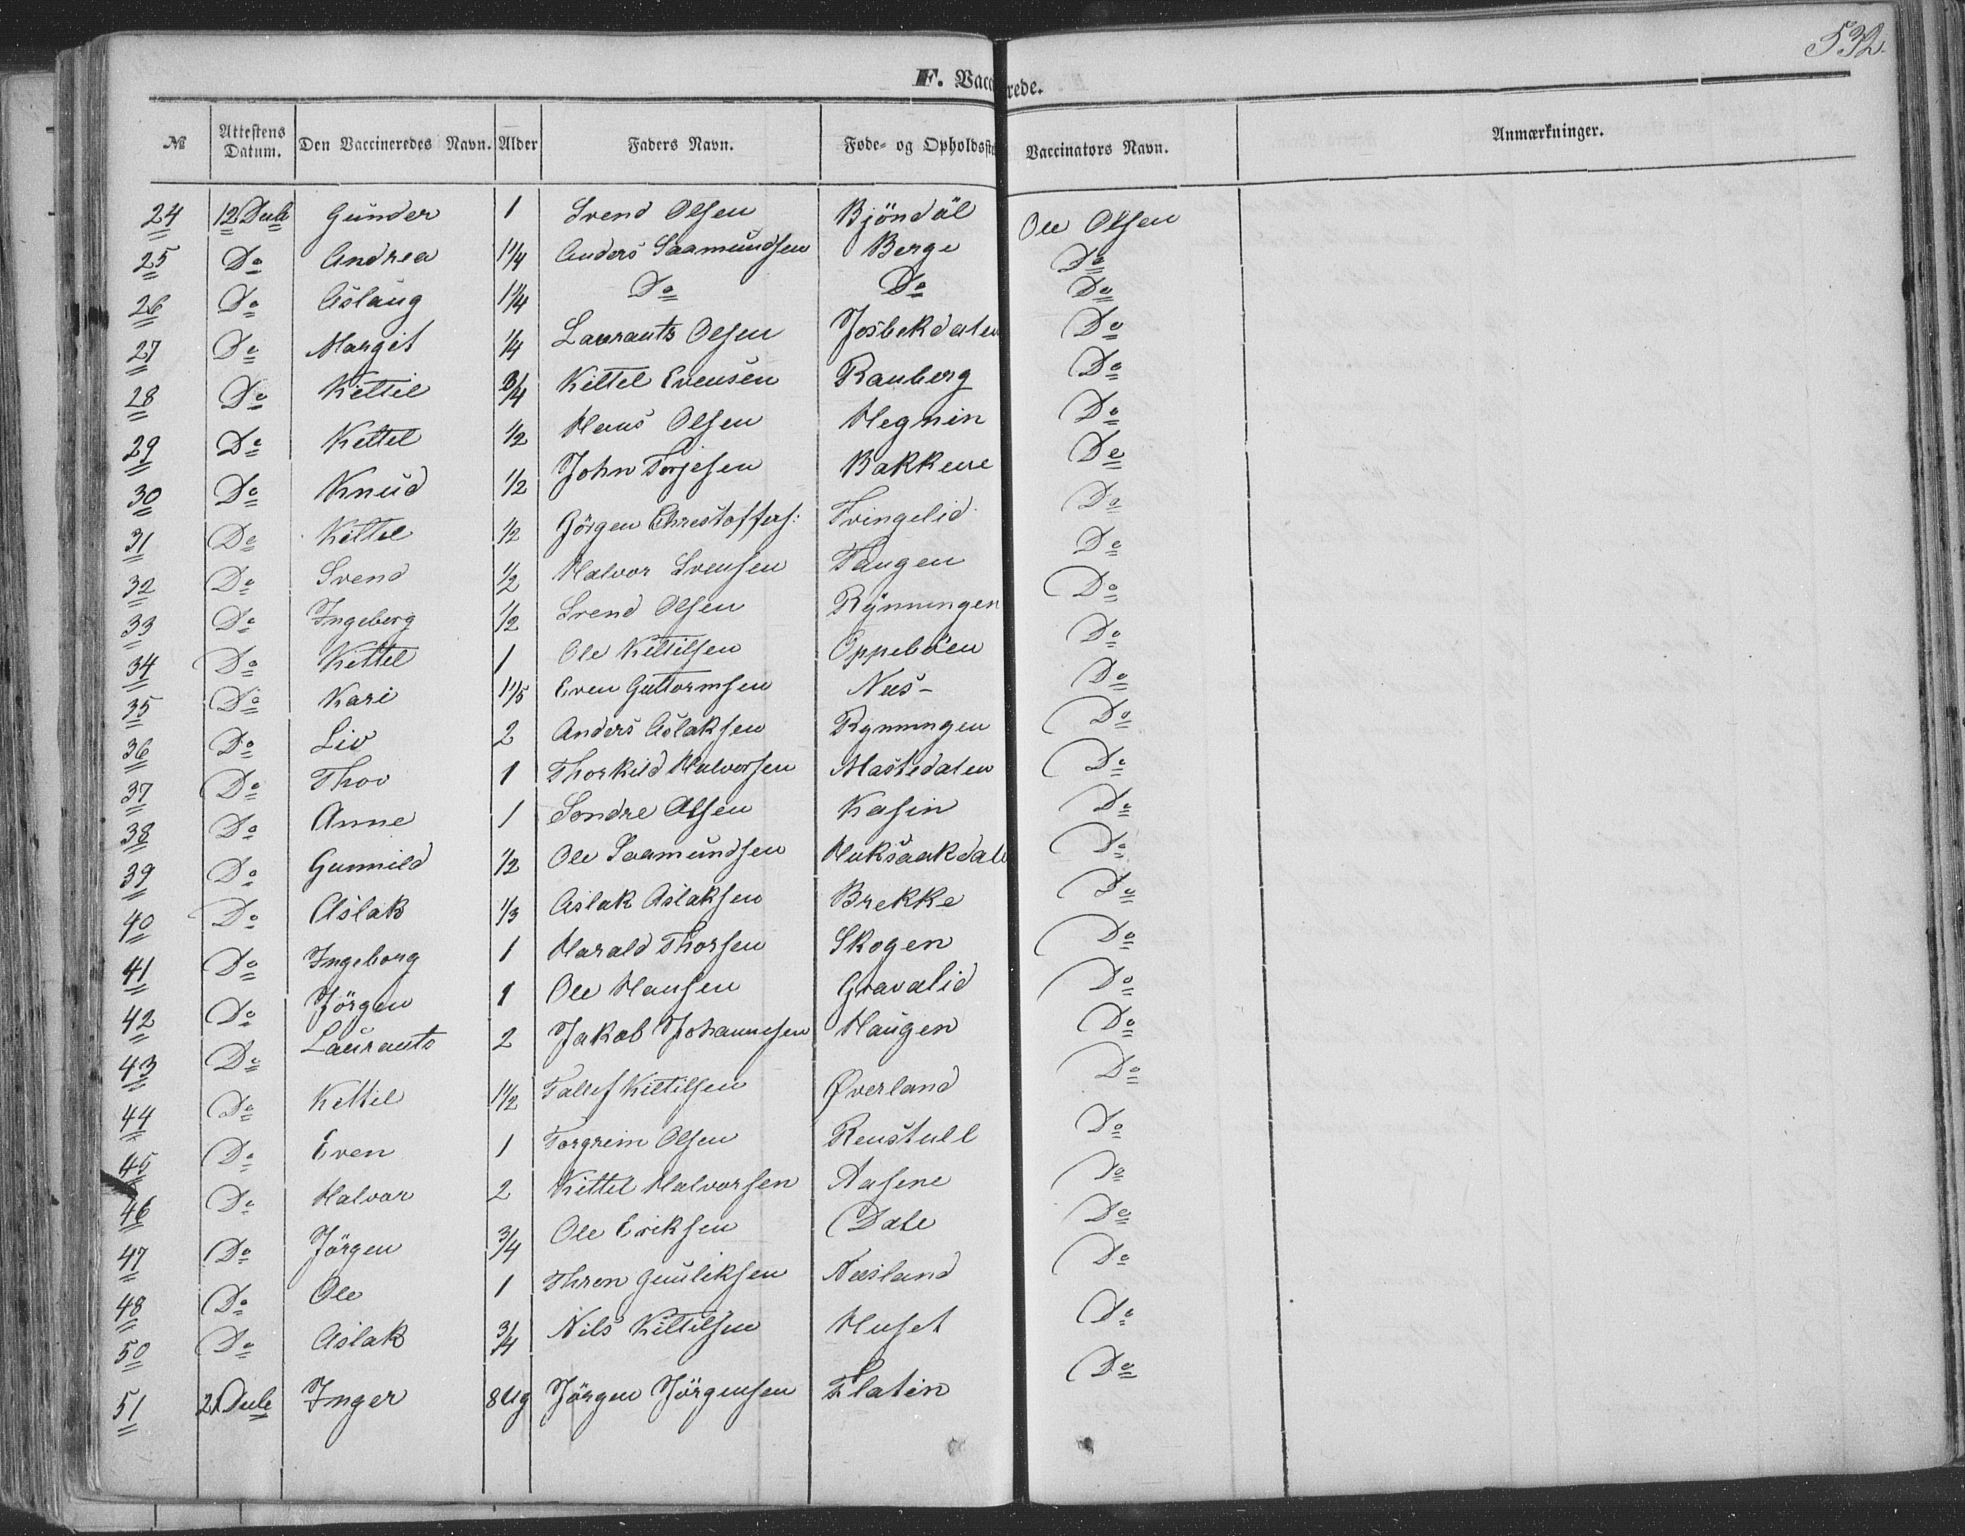 532
F. Vaccinerede.
№ | Attestens Datum. | Den Vaccineredes Navn. | Alder | Faders Navn. | Føde- og Opholdsste | Vaccinators Navn. | Anmærkninger.
24 12 Juli Gunder 1 Svend Olsen Bjöndal Ole Olsen
25 Do Andrea 1 1/4 Anders Saamundsen Berge Do
26 Do Aslaug 1 1/4 Do Do Do
27 Do Margit 1/4 Laurants Olsen Josbekdalen Do
28 Do Kettil 3/4 Kittel Evensen Rauberg Do
29 Do Kettel 1/2 Hans Olsen Hegnin Do
30 Do Knud 1/2 John Torjesen Bakkene Do
31 Do Kittel 1/2 Jörgen Christoffers: Tvingelid Do
32 Do Svend 1/2 Halvor Svensen Tangen Do
33 Do Ingeberg 1/2 Svend Olsen Rynningen Do
34 Do Kettel 1 Ole Kittilsen Oppeböen Do
35 Do Kari 1 1/5 Even Guttormsen Næs- Do
36 Do Liv 2 Anders Aslaksen Rynningen Do
37 Do Thov 1 Thorkild Halvorsen Mastedalen Do
38 Do Anne 1 Sondre Olsen Kasin Do
39 Do Gunnild 1/2 Ole Saamundsen Do
40 Do Aslak 1/3 Aslak Aslaksen Brekke Do
41 Do Ingeborg 1 Harald Thorsen Skogen Do
42 Do Jörgen 1 Ole Hansen Gravalid Do
43 Do Laurants 2 Jakob Johannesen Haugen Do
44 Do Kettel 1 1/2 Tallef Kittilsen Øverland Do
45 Do Even 1 Torgrim Olsen Renstull Do
46 Do Halvor 2 Kittel Halvorsen Aasene Do
47 Do Jörgen 3/4 Ole Eriksen Dale Do
48 Do Ole 1 Thron Gunliksen Næsland Do
50 Do Aslak 3/4 Nils Kittilsen Huset Do
51 21 Juli Inger 8 Ug Jörgen Jörgensen Flatin Do